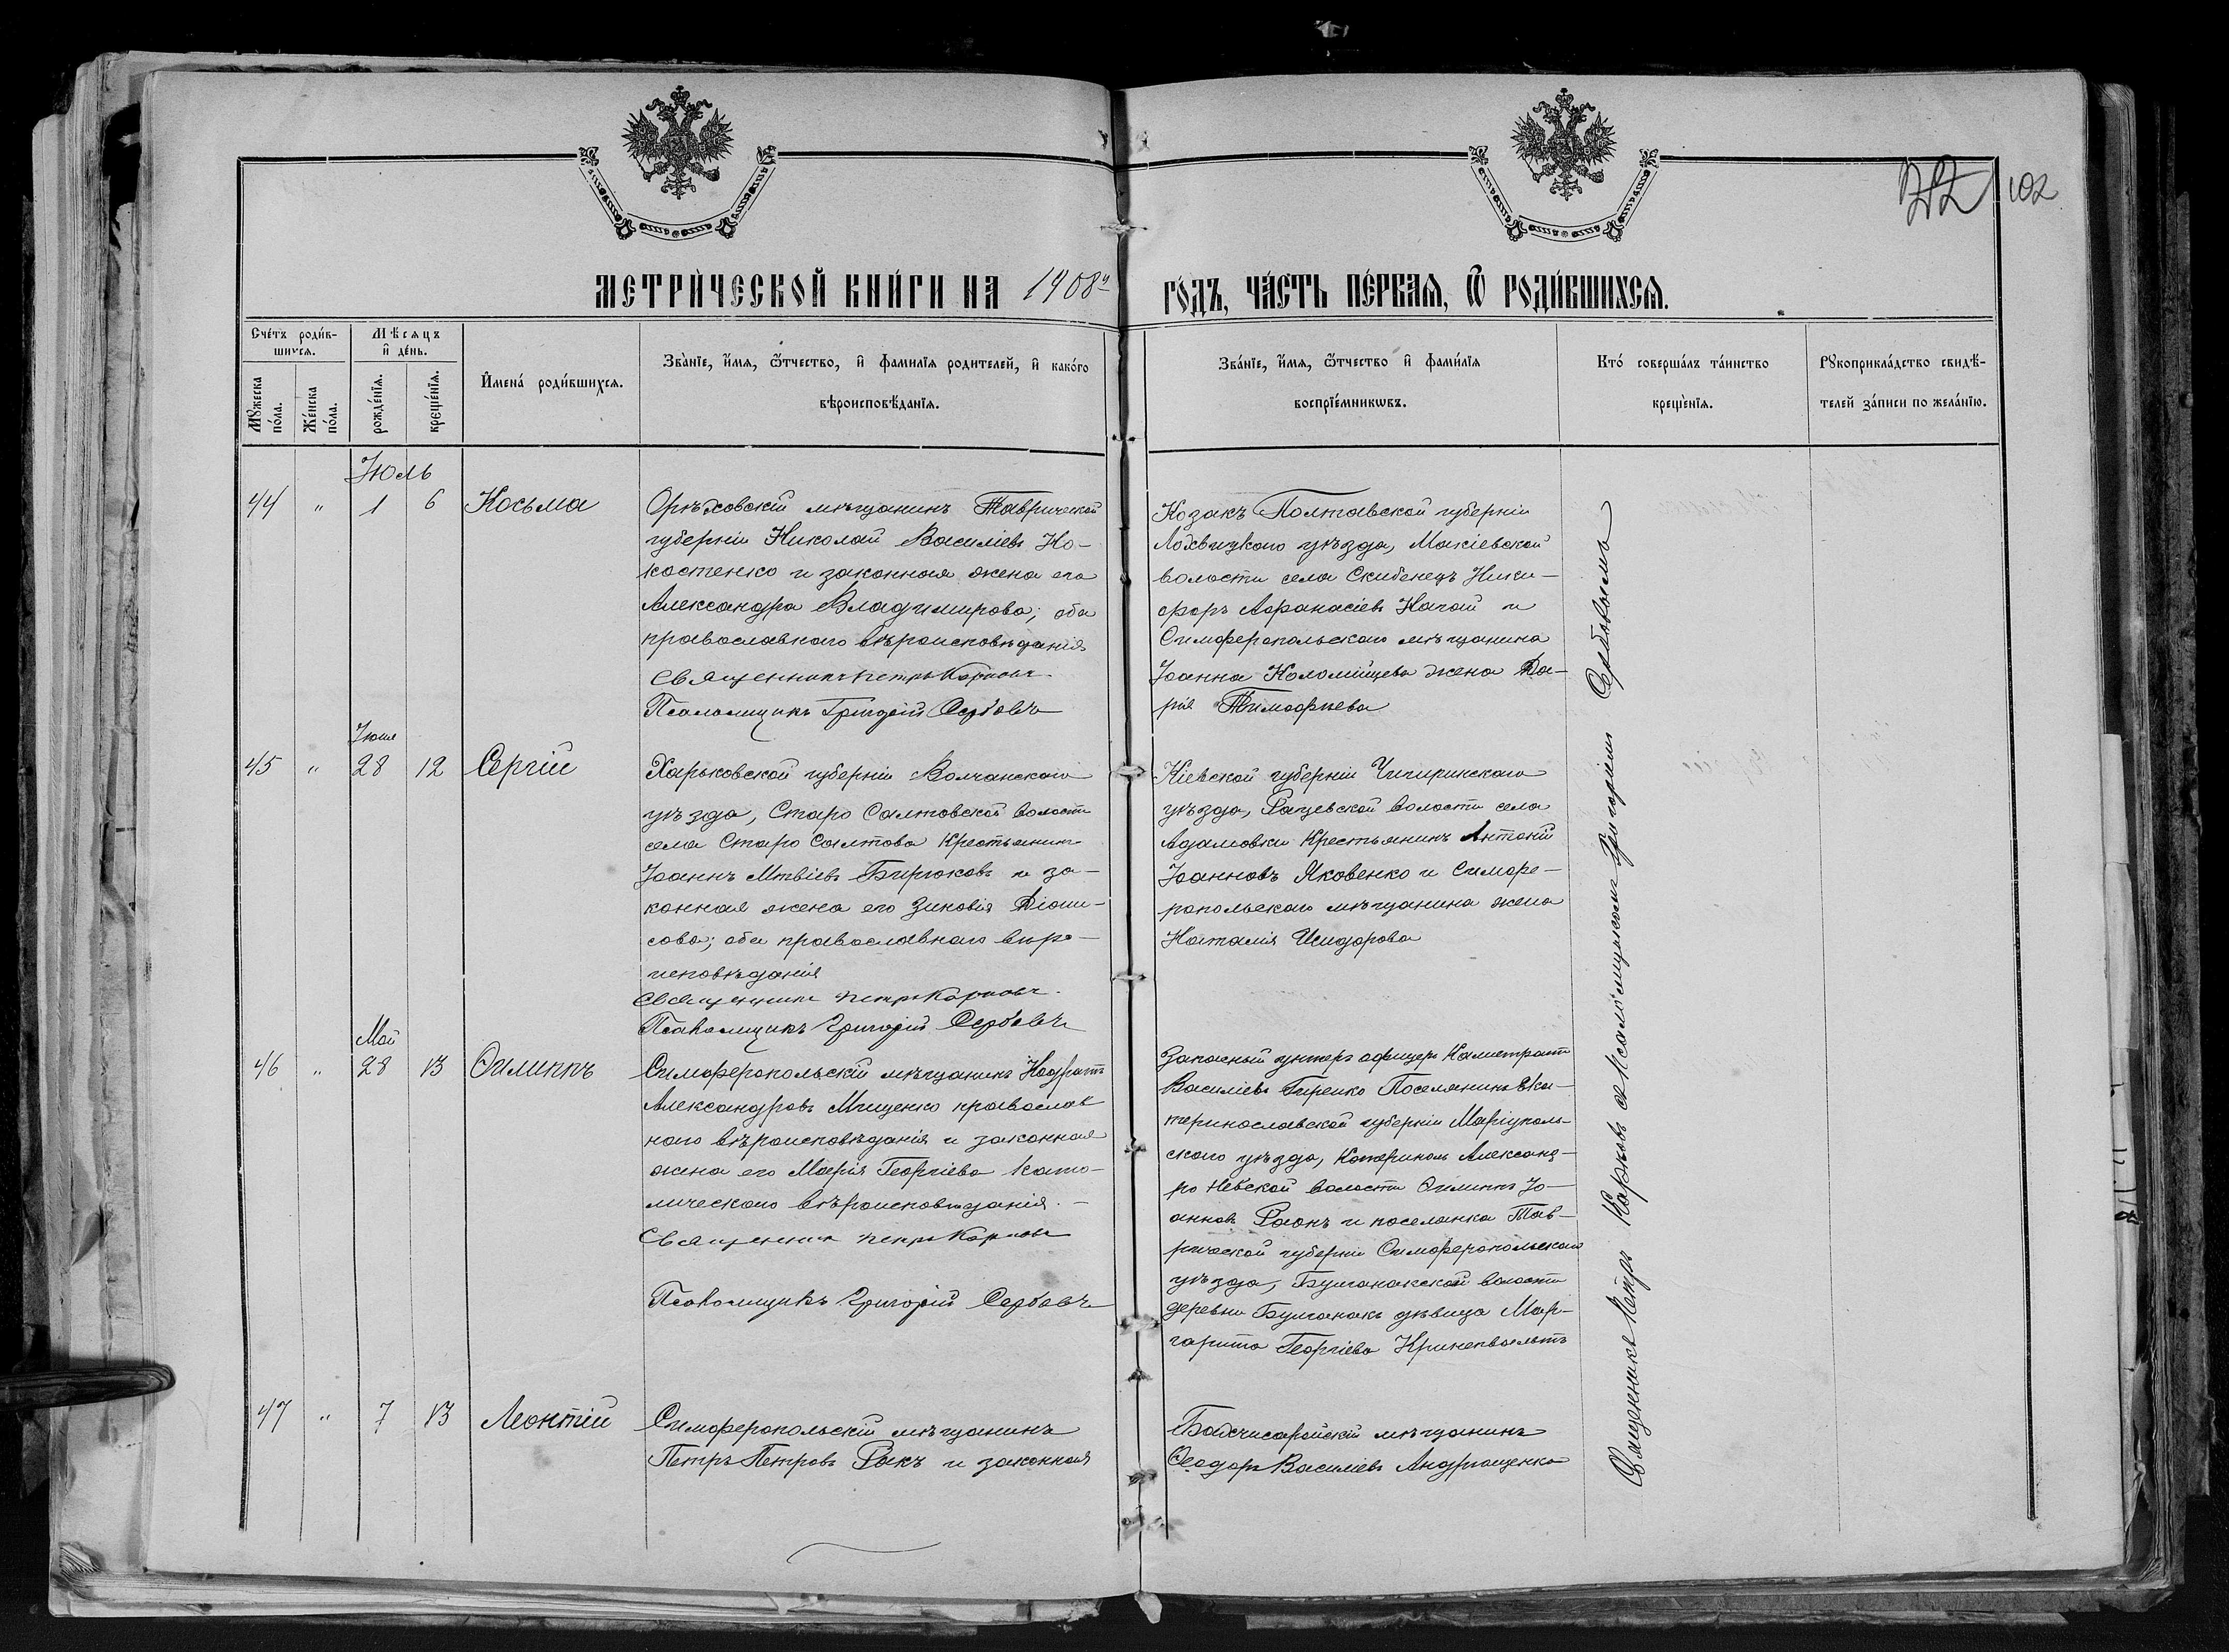 102
МЕТРИ́ЧЕСКОЙ КНИ́ГИ НА 1908й ГО́ДЪ, ЧА́СТЬ ПЕ́РВАѦ, Ѿ РОДИ́ВШИХСѦ.
Сче́тъ роди́в-
шихся.
Мѣсяцъ
и̂ де́нь.
Мꙋжеска
по́ла.
Же́нска
по́ла.
рожде́нїя.
креще́нїя.
И̂мена́ роди́вшихся.
Зва́нїе, и҆́мя, ѻ҆́тчество, и҆ фамилїя родителей, и҆ како́го
вѣроисповѣ́данїя.
Зва́нїе, и҆́мя, ѻ҆́тчество и҆ фами́лїя
воспрїе́мникѡвъ.
Кто́ соверша́лъ та́инство
креще́нїя.
Рꙋкоприкла́дство свидѣ́-
телей за́писи по жела́нїю.
Іюль
44 " 1 6 Косьма
Орѣховскій мѣщанинъ Таврической
губерніи Николай Василіевъ Но-
костенко и законная жена его
Александра Владимирова; оба
православнаго вѣроисповѣданія
Священникъ Петръ Карповъ.
Псаломщикъ Григорій Сербовъ
Козакъ Полтавской губерніи
Лохвицкаго уѣзда, Макіевской
волости села Скибенецъ Ники-
форъ Афанасіевъ Нагай и
Симферопольскаго мѣщанина
Іоанна Коломійцева жена Да-
рія Тимофѣева
Іюня
45 " 28 12 Сергій
Харьковской губерніи Волчанскаго
уѣзда, Старо Салтовской волости
села Старо Салтова Крестьянинъ
Іоаннъ Мтвіевъ Бирюковъ и за-
конная жена его Зиновія Діони-
сова; оба православнаго вѣро-
исповѣданія
Священникъ Петръ Карповъ.
Псаломщикъ Григорій Сербовъ
Кіевской губерніи Чигиринскаго
уѣзда, Рацевской волости села
Адамовки Крестьянинъ Антоній
Іоанновъ Яковенко и Симфе-
ропольскаго мѣщанина жена
Наталія Исидорова
Май
46 " 28 13 Филиппъ
Симферопольскій мѣщанинъ Кодратъ
Александровъ Мищенко православ
наго вѣроисповѣданія и законная
жена его Марія Георгіева като-
лическаго вѣроисповѣданія. -
Священникъ Петръ Карповъ
Псаломщикъ Григорій Сербовъ
Запасный унтеръ офицеръ Калистратъ
Василіевъ Гиренко Поселянинъ Ека-
теринославской губерніи Маріуполь-
скаго уѣзда, Александ-
ро Невской волости Филиппъ Іо-
анновъ и поселянка Тав-
рической губерніи Симферопольскаго
уѣзда, Булганакской волости
деревни Булганакъ дѣвица Мар-
гарита Георгіева
47 " 7 13 Леонтій
Симферопольскій мѣщанинъ
Петръ Петровъ Ракъ и законная
Бахчисарайскій мѣщанинъ
Ѳеодоръ Василіевъ Андрющенко
Священникъ Петръ Карповъ съ псаломщикомъ Григоріемъ Сербовымъ